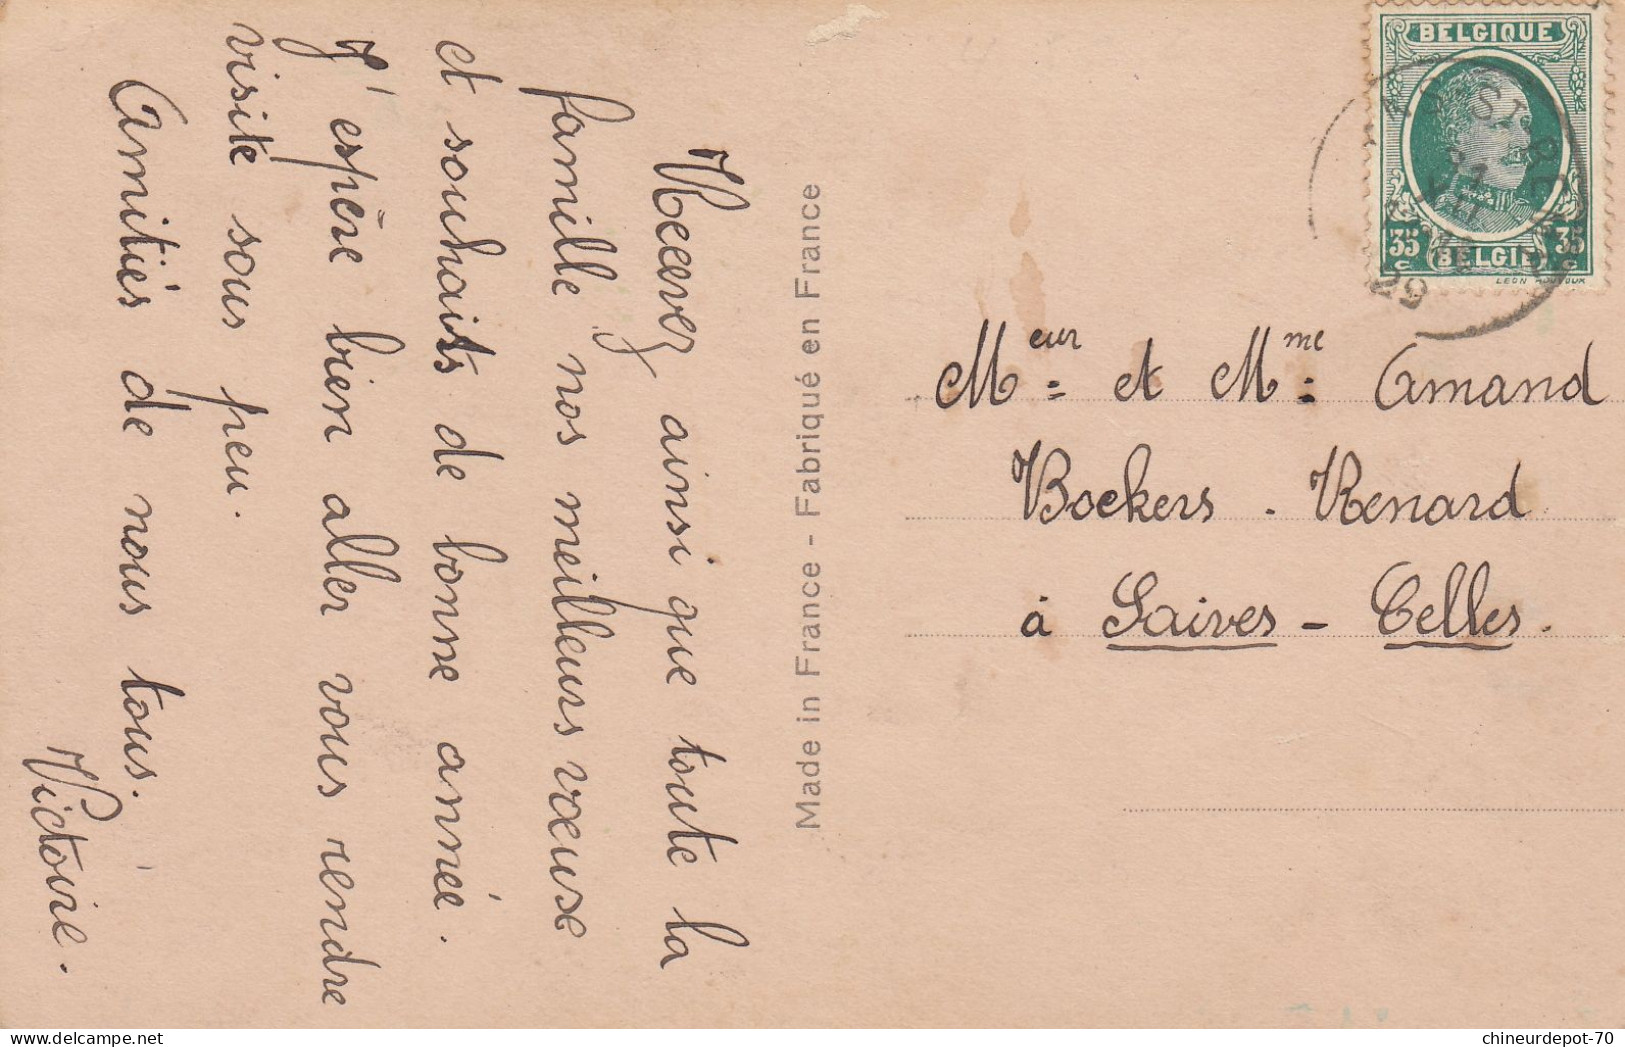 Recevez ainsi que toute la
famille nos meilleurs voeuse
et souhaits de bonne année.
J'espère bien aller vous rendre
visite sous peu.
Amitiés de nous tous.
Victoire.
Made in France - Fabriqué en France
BELGIQUE
35 c BELGIE 35 c
29
Meur et Mme Amand
Bockers - Renard
à Saives - Celles.
chineurdepot-70